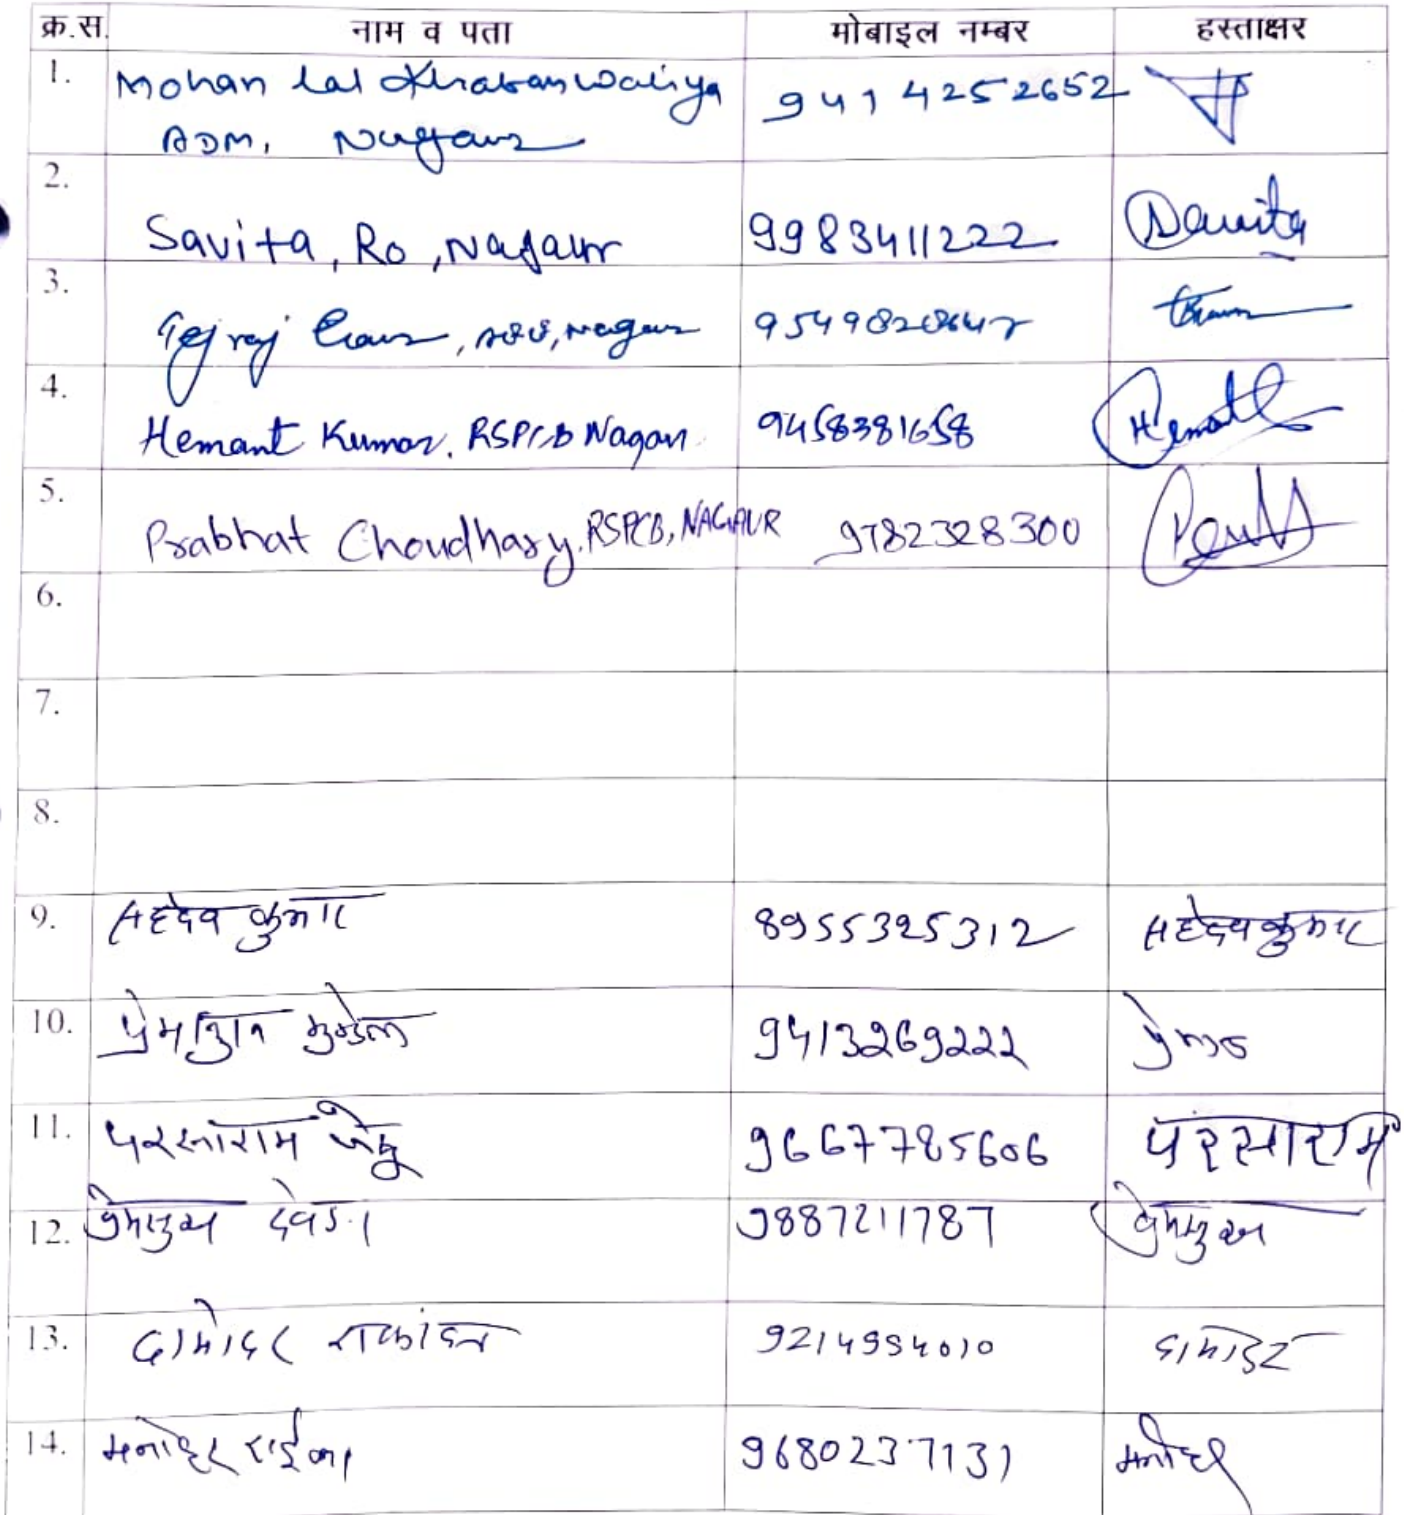 क्र.स. नाम व पता मोबाइल नम्बर हस्ताक्षर
1. Mohan Lal Khatanwaliya 9414252652
ADM, Nagaur
2. Savita, Ro, Nagaur 9983411222 Savita
3. Tejraj Nagaur
4. Hemant Kumar. RSPCB Nagaur 9458381658 Hemant
5. Prabhat Choudhary, RSPCB, NAGAUR 9782328300
6.
7.
8.
9. सहदेव कुमार 8955325312 सहदेव कुमार
10. 9413269222
11. परसाराम 9667785606 परसाराम
12. प्रेमसुख देवड़ा 9887211787 प्रेमसुख
13. दामोदर 9214994010 दामोदर
14. मनोहर 9680237131 मनोहर